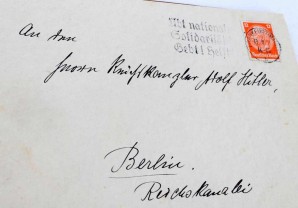 An den
Übt national
Solidarität
Gebt! Helft
Herrn Reichskanzler Adolf Hitler,
Berlin.
Reichskanzlei